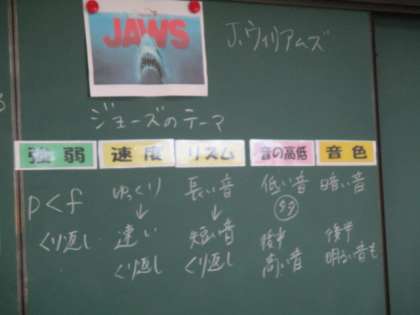 JAWS
J.ウィリアムズ
ジョーズのテーマ
強弱 速度 リズム 音の高低 音色
p<f ゆっくり 長い音 低い音 暗い音
↓ ↓
くり返し 速い 短い音 後半 後半
くり返し くり返し 高い音 明るい音も